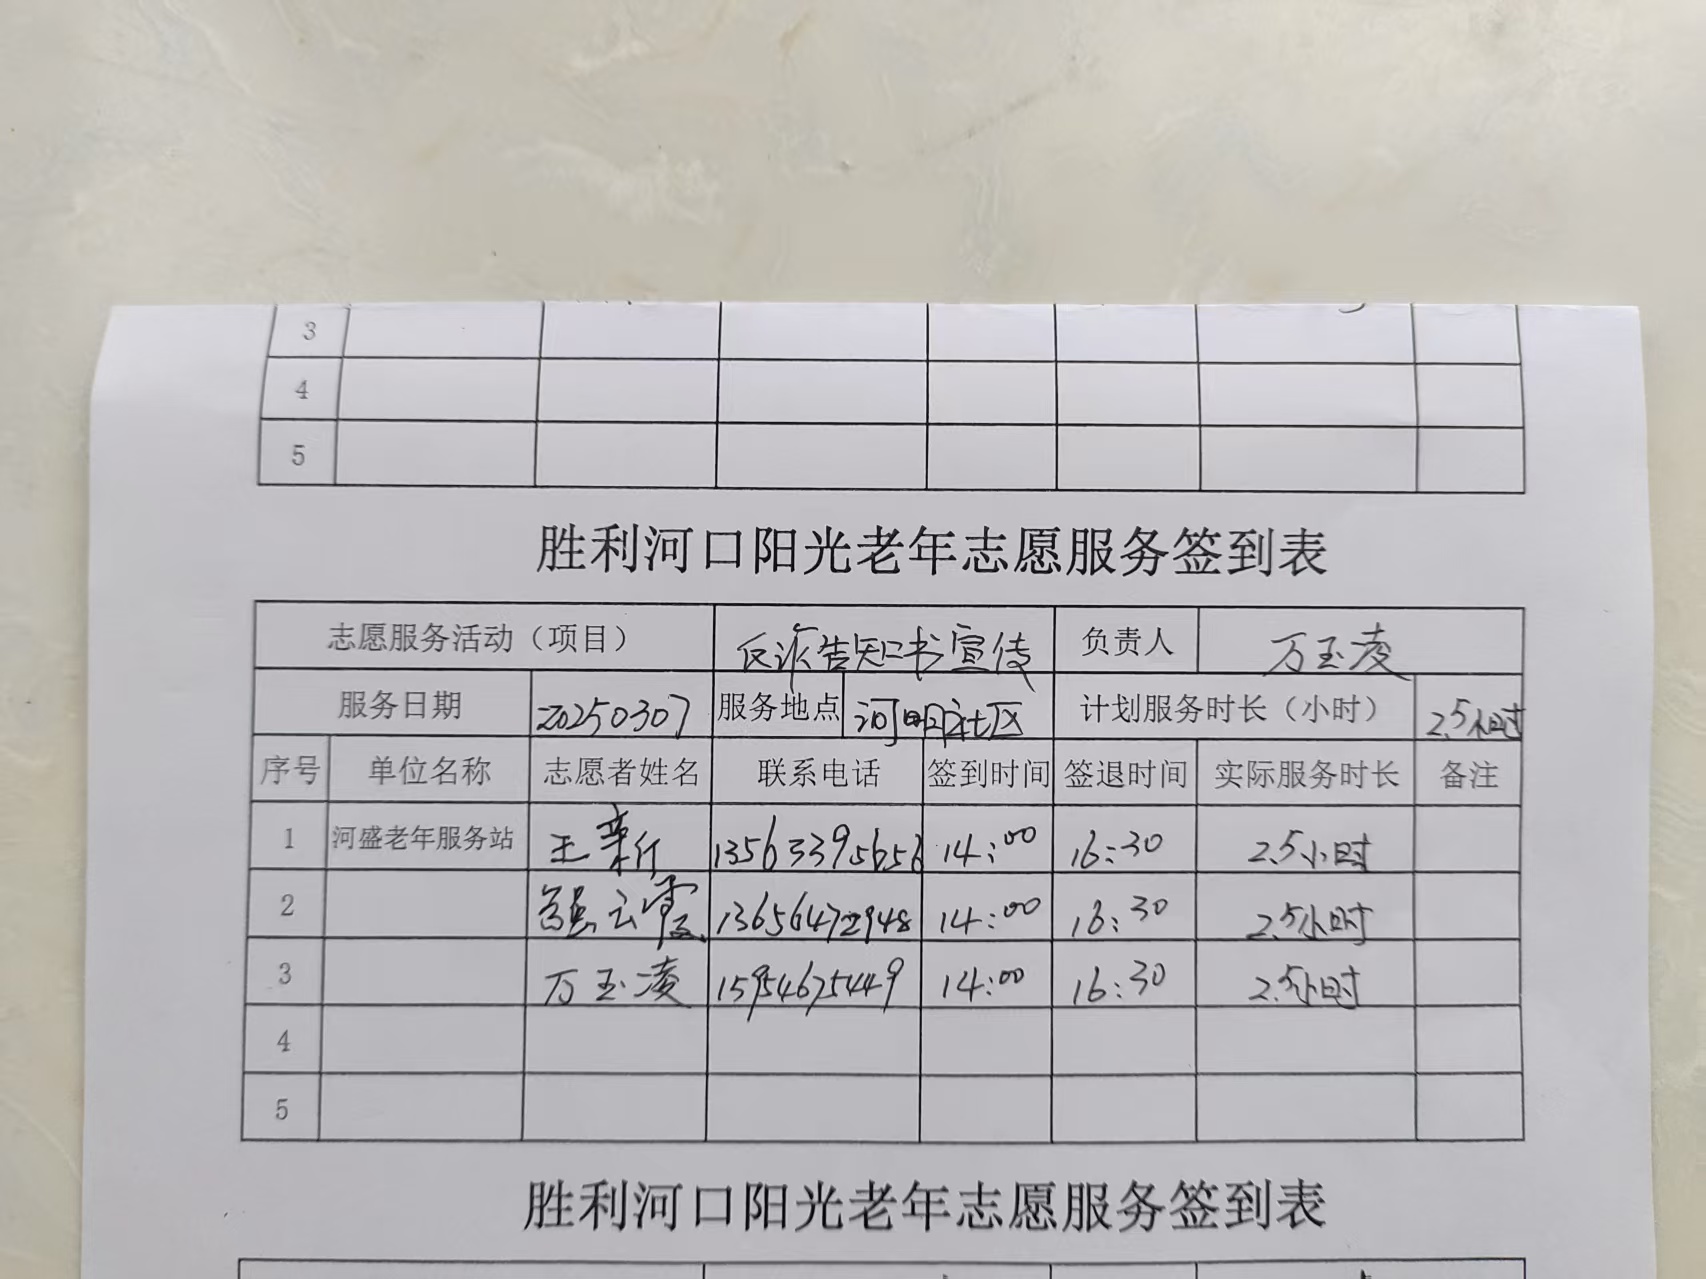 3
4
5
胜利河口阳光老年志愿服务签到表
志愿服务活动（项目） 反诈告知书宣传 负责人 万玉凌
服务日期 20250307 服务地点 河明社区 计划服务时长（小时） 2.5小时
序号 单位名称 志愿者姓名 联系电话 签到时间 签退时间 实际服务时长 备注
1 河盛老年服务站 王 13563395656 14:00 16:30 2.5小时
2 云霞 13656472948 14:00 16:30 2.5小时
3 万玉凌 15954675449 14:00 16:30 2.5小时
4
5
胜利河口阳光老年志愿服务签到表